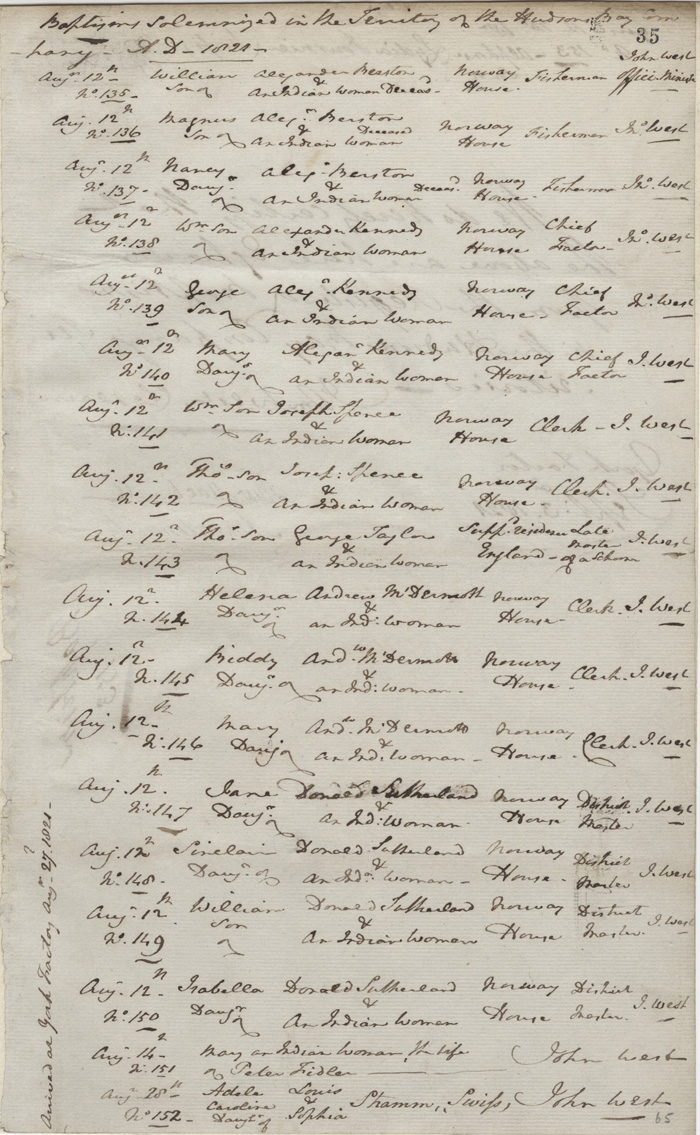 Baptisms Solemnized in the Territory of the Hudsons Bay Com
-pany - A.D - 1821 -
35
John West
Augt. 12th William Alexander Berston Norway Fisherman Offic. Minister
No. 135 - Son of & an Indian Woman Deceasd. House.
Augt. 12th Magnus Alexr. Berston Norway Fisherman Jno. West
No. 136 Son of & an Indian Woman Deceased House
Augt. 12th Nancy Alexr. Berston Norway Fisherman Jno. West
No. 137 - Daugr. of & an Indian Woman Deceasd. House -
Augt. 12th Wm. Son Alexander Kennedy Norway Chief Jno. West
No. 138 of & an Indian Woman House Factor -
Augt. 12th George Alexr. Kennedy Norway Chief Jno. West
No. 139 Son of & an Indian Woman House - Factor
Augt. 12th Mary Alexanr. Kennedy Norway Chief J. West
No. 140 Daugr. of & an Indian Woman House Factor
Augt. 12th Wm. Son Joseph Spence Norway Clerk - J. West
No. 141 of & an Indian Woman House
Aug. 12th Thos. Son Josep: Spence Norway Clerk. J. West
No. 142 of & an Indian Woman House -
Aug. 12th Thos. Son George Taylor Late J. West
No. 143 of & an Indian Woman England - Master of a Schoon
Aug. 12th Helena Andrew McDermott Norway Clerk. J. West
No. 144 Daugr. of & an Ind: Woman House -
Aug. 12th - Biddy Andw. McDermott Norway Clerk. J. West
No. 145 Daugr. of & an Ind: Woman - House -
Aug. 12th - Mary Andw. McDermott Norway Clerk. J. West
No. 146 Daugr. of & an Ind: Woman - House -
Aug. 12th. Jane Donald Sutherland Norway District J. West
No. 147 Daugr. of & an Ind: Woman - House Master
Aug. 12th Sinclair Donald Sutherland Norway District J. West
No. 148 - Daugr. of & an Indn. Woman - House - Master
Aug. 12th William Donald Sutherland Norway District J. West
No. 149 Son of & an Indian Woman House Master
Aug. 12th - Isabella Donald Sutherland Norway District J. West
No. 150 Daugr. of & an Indian Woman House Master.
Aug. 14th - Mary an Indian Woman, the wife John West
No. 151 of Peter Fidler
Aug. 28th Adele Louis Stamm, Swiss, John West
No. 152 Caroline Daugt. of & Sophia
65
Arrived at York Factory Augt. 27. 1821 -